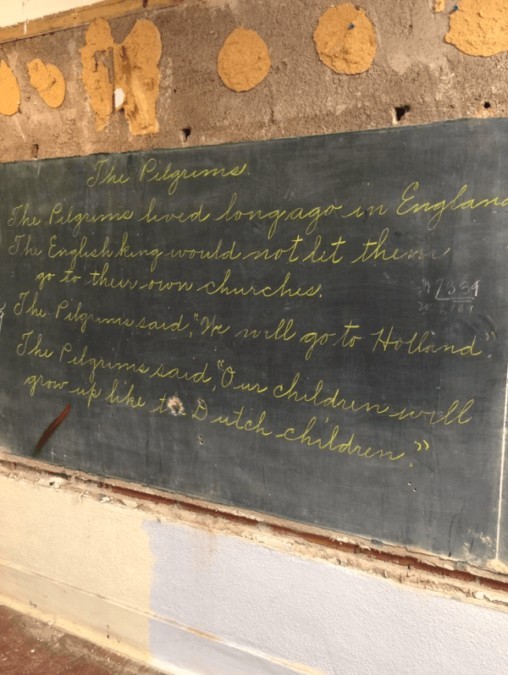 The Pilgrims.
The Pilgrims lived long ago in England
The English king would not let them
go to their own churches.
The Pilgrims said, "We will go to Holland."
The Pilgrims said, "Our children will
grow up like Dutch children."